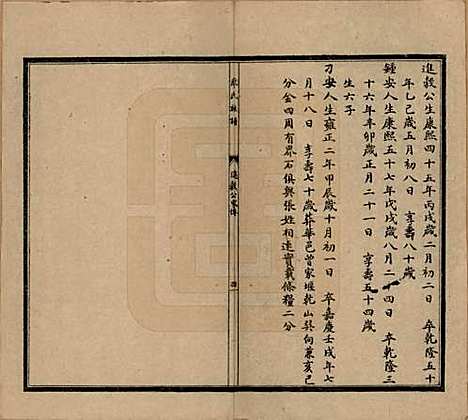 進毅公生康熙四十五年丙戌歲二月初二日 卒乾隆五十
年乙巳歲五月初八日 享壽八十歲
鍾安人生康熙五十七年戊戌歲八月二十四日 卒乾隆三
十六年辛卯歲正月二十一日 享壽五十四歲
生六子
刁安人生雍正二年甲辰歲十月初一日 卒嘉慶壬戌年七
月十八日 享壽七十歲葬華邑曾家堰乾山巽向兼亥巳
分金四周有界石俱與張姓相連實載條糧二分
氏族譜
進毅公